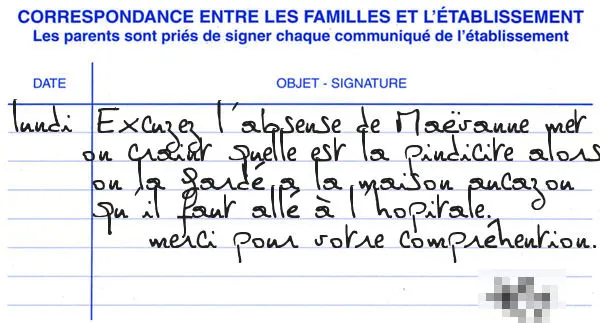 CORRESPONDANCE ENTRE LES FAMILLES ET L'ÉTABLISSEMENT
Les parents sont priés de signer chaque communiqué de l'établissement
DATE OBJET - SIGNATURE
lundi Excuzez l'absense de Maëvanne met
on craint quelle est la pindicite alors
on la gardé a la maison aucazou
qu'il faut allé à l'hopitale.
merci pour votre compréhention.